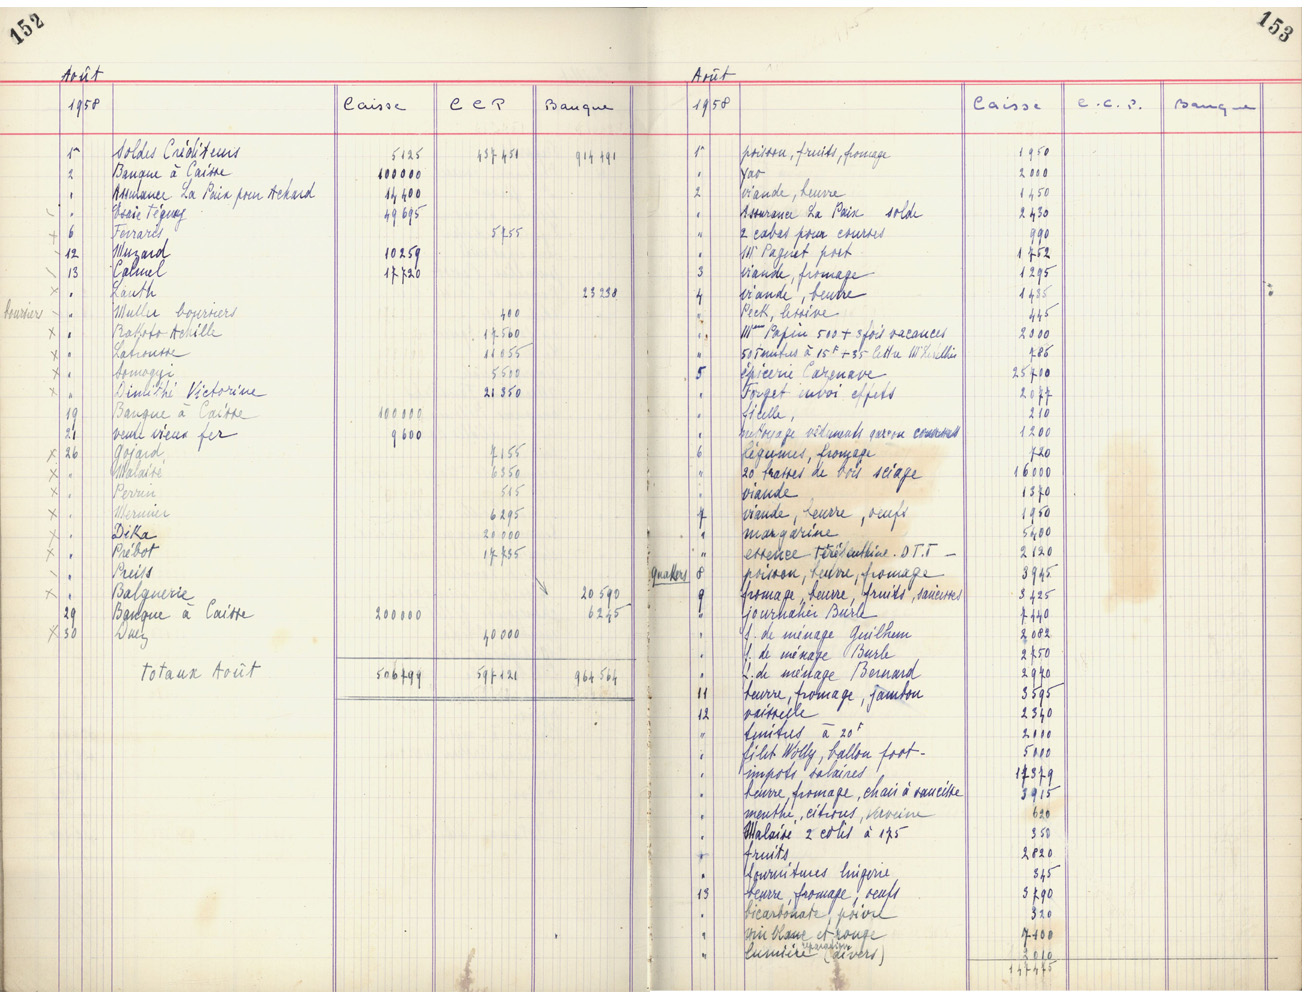 152
Août
1958 Caisse C C P Banque
1 Soldes Créditeurs 5125 437 451 914 491
2 Banque à Caisse 100000
" Assurance La Paix pour Achard 14 400
" 49 695
6 Ferrarès 5755
12 Muzard 10 259
13 Calmel 17720
" Lauth 23 238
boursiers " Muller boursiers 400
" Rakoto Achille 17 560
" Latrousse 11 055
" Somogyi 5500
" Dimithé Victorine 21 350
19 Banque à Caisse 100 000
21 vente vieux fer 9 600
26 Gojard 7 155
" Malaisé 6350
" Perrin 515
" Mernier 6 295
" Dika 20 000
" Prébot 17 735
" Preiss
" Balguerie 20 590
29 Banque à Caisse 200 000 6245
30 40 000
Totaux Août 506799 597 121 964 564
153
Août
1958 Caisse C.C.P. Banque
1 poisson, fruits, fromage 1950
" 2 000
2 viande, beurre 1 450
" Assurance La Paix solde 2 430
" 2 cabas pour courses 990
" Mr Paguet port 1 752
3 viande, fromage 1 295
4 viande, beurre 1 435
" Peck, lessive 445
" Mme Papin 500 + 3 fois vacances 2 000
" 50 à 15F + 35 lettre 785
5 épicerie Cazenave 25 700
" Forget envoi effets 2 077
" ficelle, 210
" nettoyage vêtements garçon 1 200
6 légumes, fromage 720
" 20 brasses de bois sciage 16 000
" viande 1 370
7 viande, beurre, oeufs 1 950
" margarine 5400
" essence térébenthine. DTT - 2 120
Quakers 8 poisson, beurre, fromage 3 945
9 fromage, beurre, fruits, saucisses 3 425
" journalier Burle 7 140
" f. de ménage Guilhem 2 082
" f. de ménage Burle 2 750
" f. de ménage Bernard 2 970
11 beurre, fromage, jambon 3 595
12 vaisselle 2 340
" timbres à 20F 2 000
" filet Volly, ballon foot- 5 000
" impots salaires 17 379
" beurre, fromage, chair à saucisse 3 915
" menthe, citrons, verveine 620
" Malaisé 2 colis à 175 350
" fruits 2 820
" fournitures lingerie 345
13 beurre, fromage, oeufs 3 790
" bicarbonate, poivre 320
" vin blanc et rouge 7 400
" lumière réparation (divers) 2 010
147 475